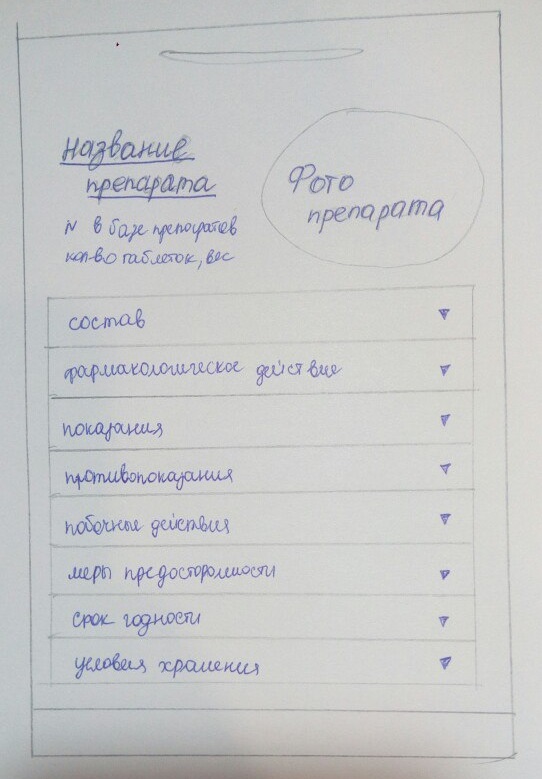 Название
препарата
Фото
препарата
N в базе препаратов
кол-во таблеток, вес
состав
фармакологическое действие
показания
противопоказания
побочные действия
меры предосторожности
срок годности
условия хранения